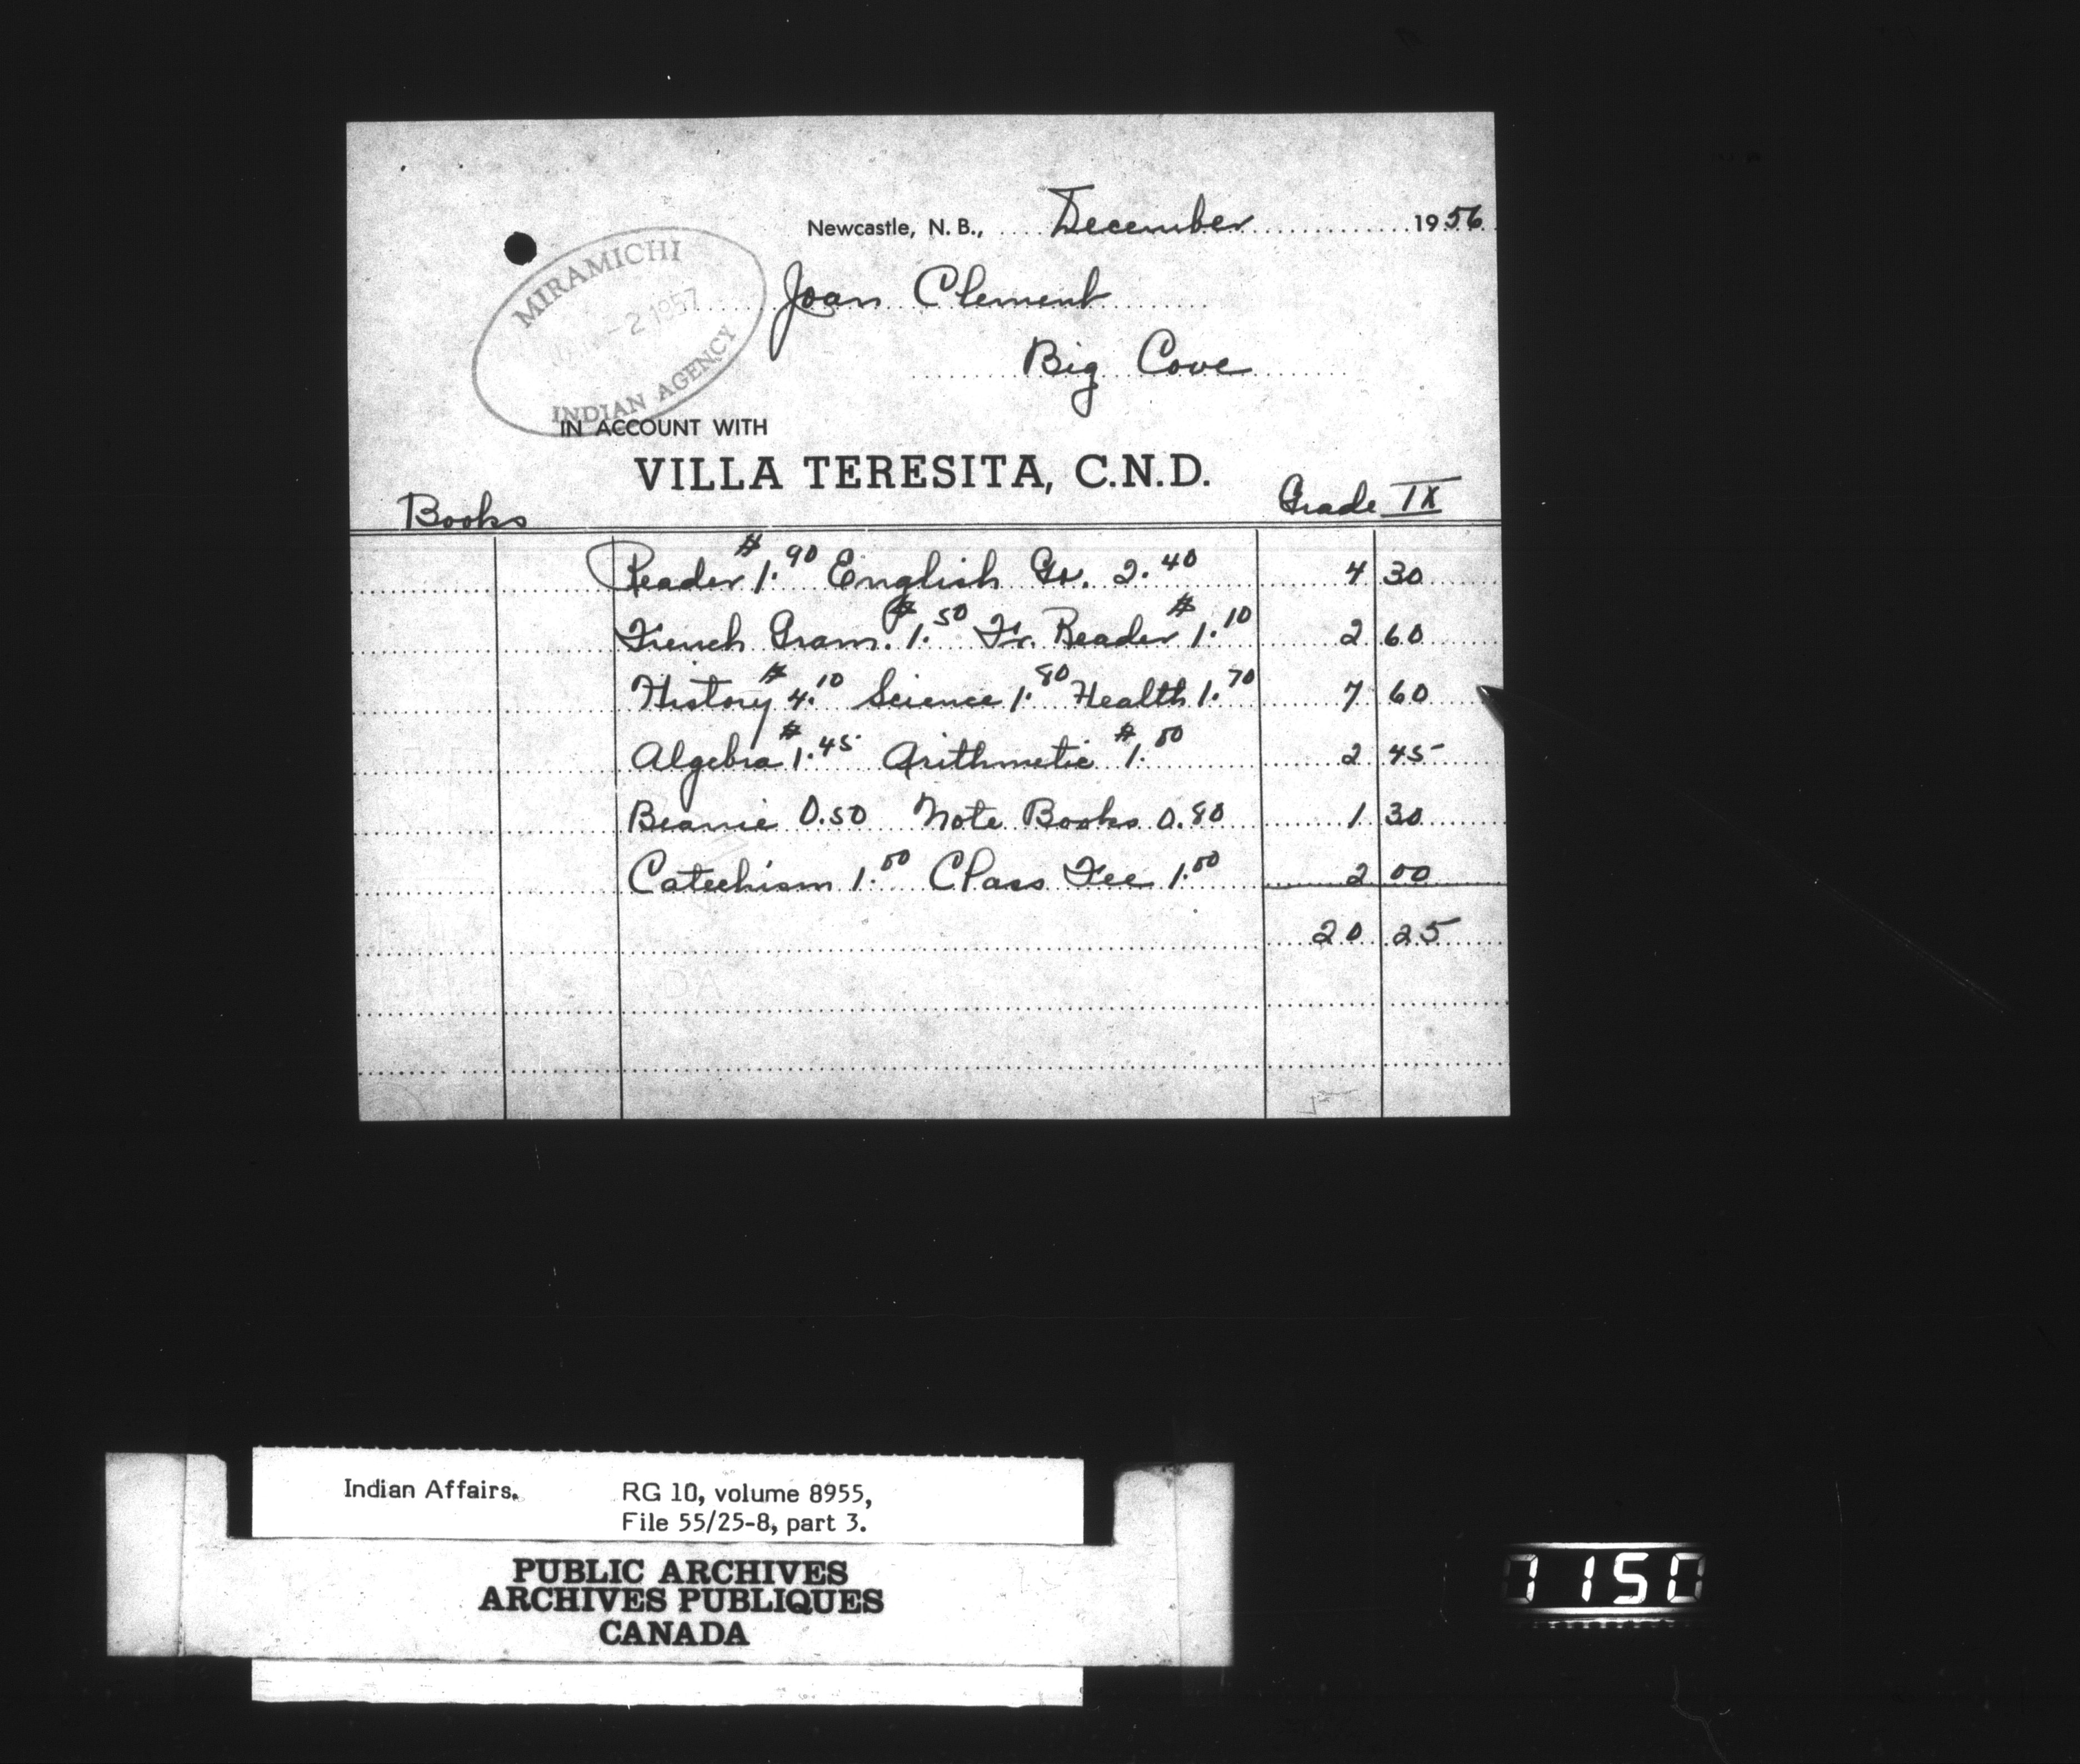 Newcastle, N. B., December 1956
MIRAMICHI
2 1957
INDIAN AGENCY
Joan Clement
Big Cove
IN ACCOUNT WITH
VILLA TERESITA, C.N.D.
Books Grade IX
Reader $1.90 English Gr. 2.40 4 30
French Gram. $1.50 Fr. Reader $1.10 2 60
History $4.10 Science 1.80 Health 1.70 7 60
Algebra $1.45 Arithmetic $1.00 2 45
Beanie 0.50 Note Books 0.80 1 30
Catechism 1.00 Class Fee 1.00 2 00
20 25
Indian Affairs. RG 10, volume 8955,
File 55/25-8, part 3.
PUBLIC ARCHIVES
ARCHIVES PUBLIQUES
CANADA
0150